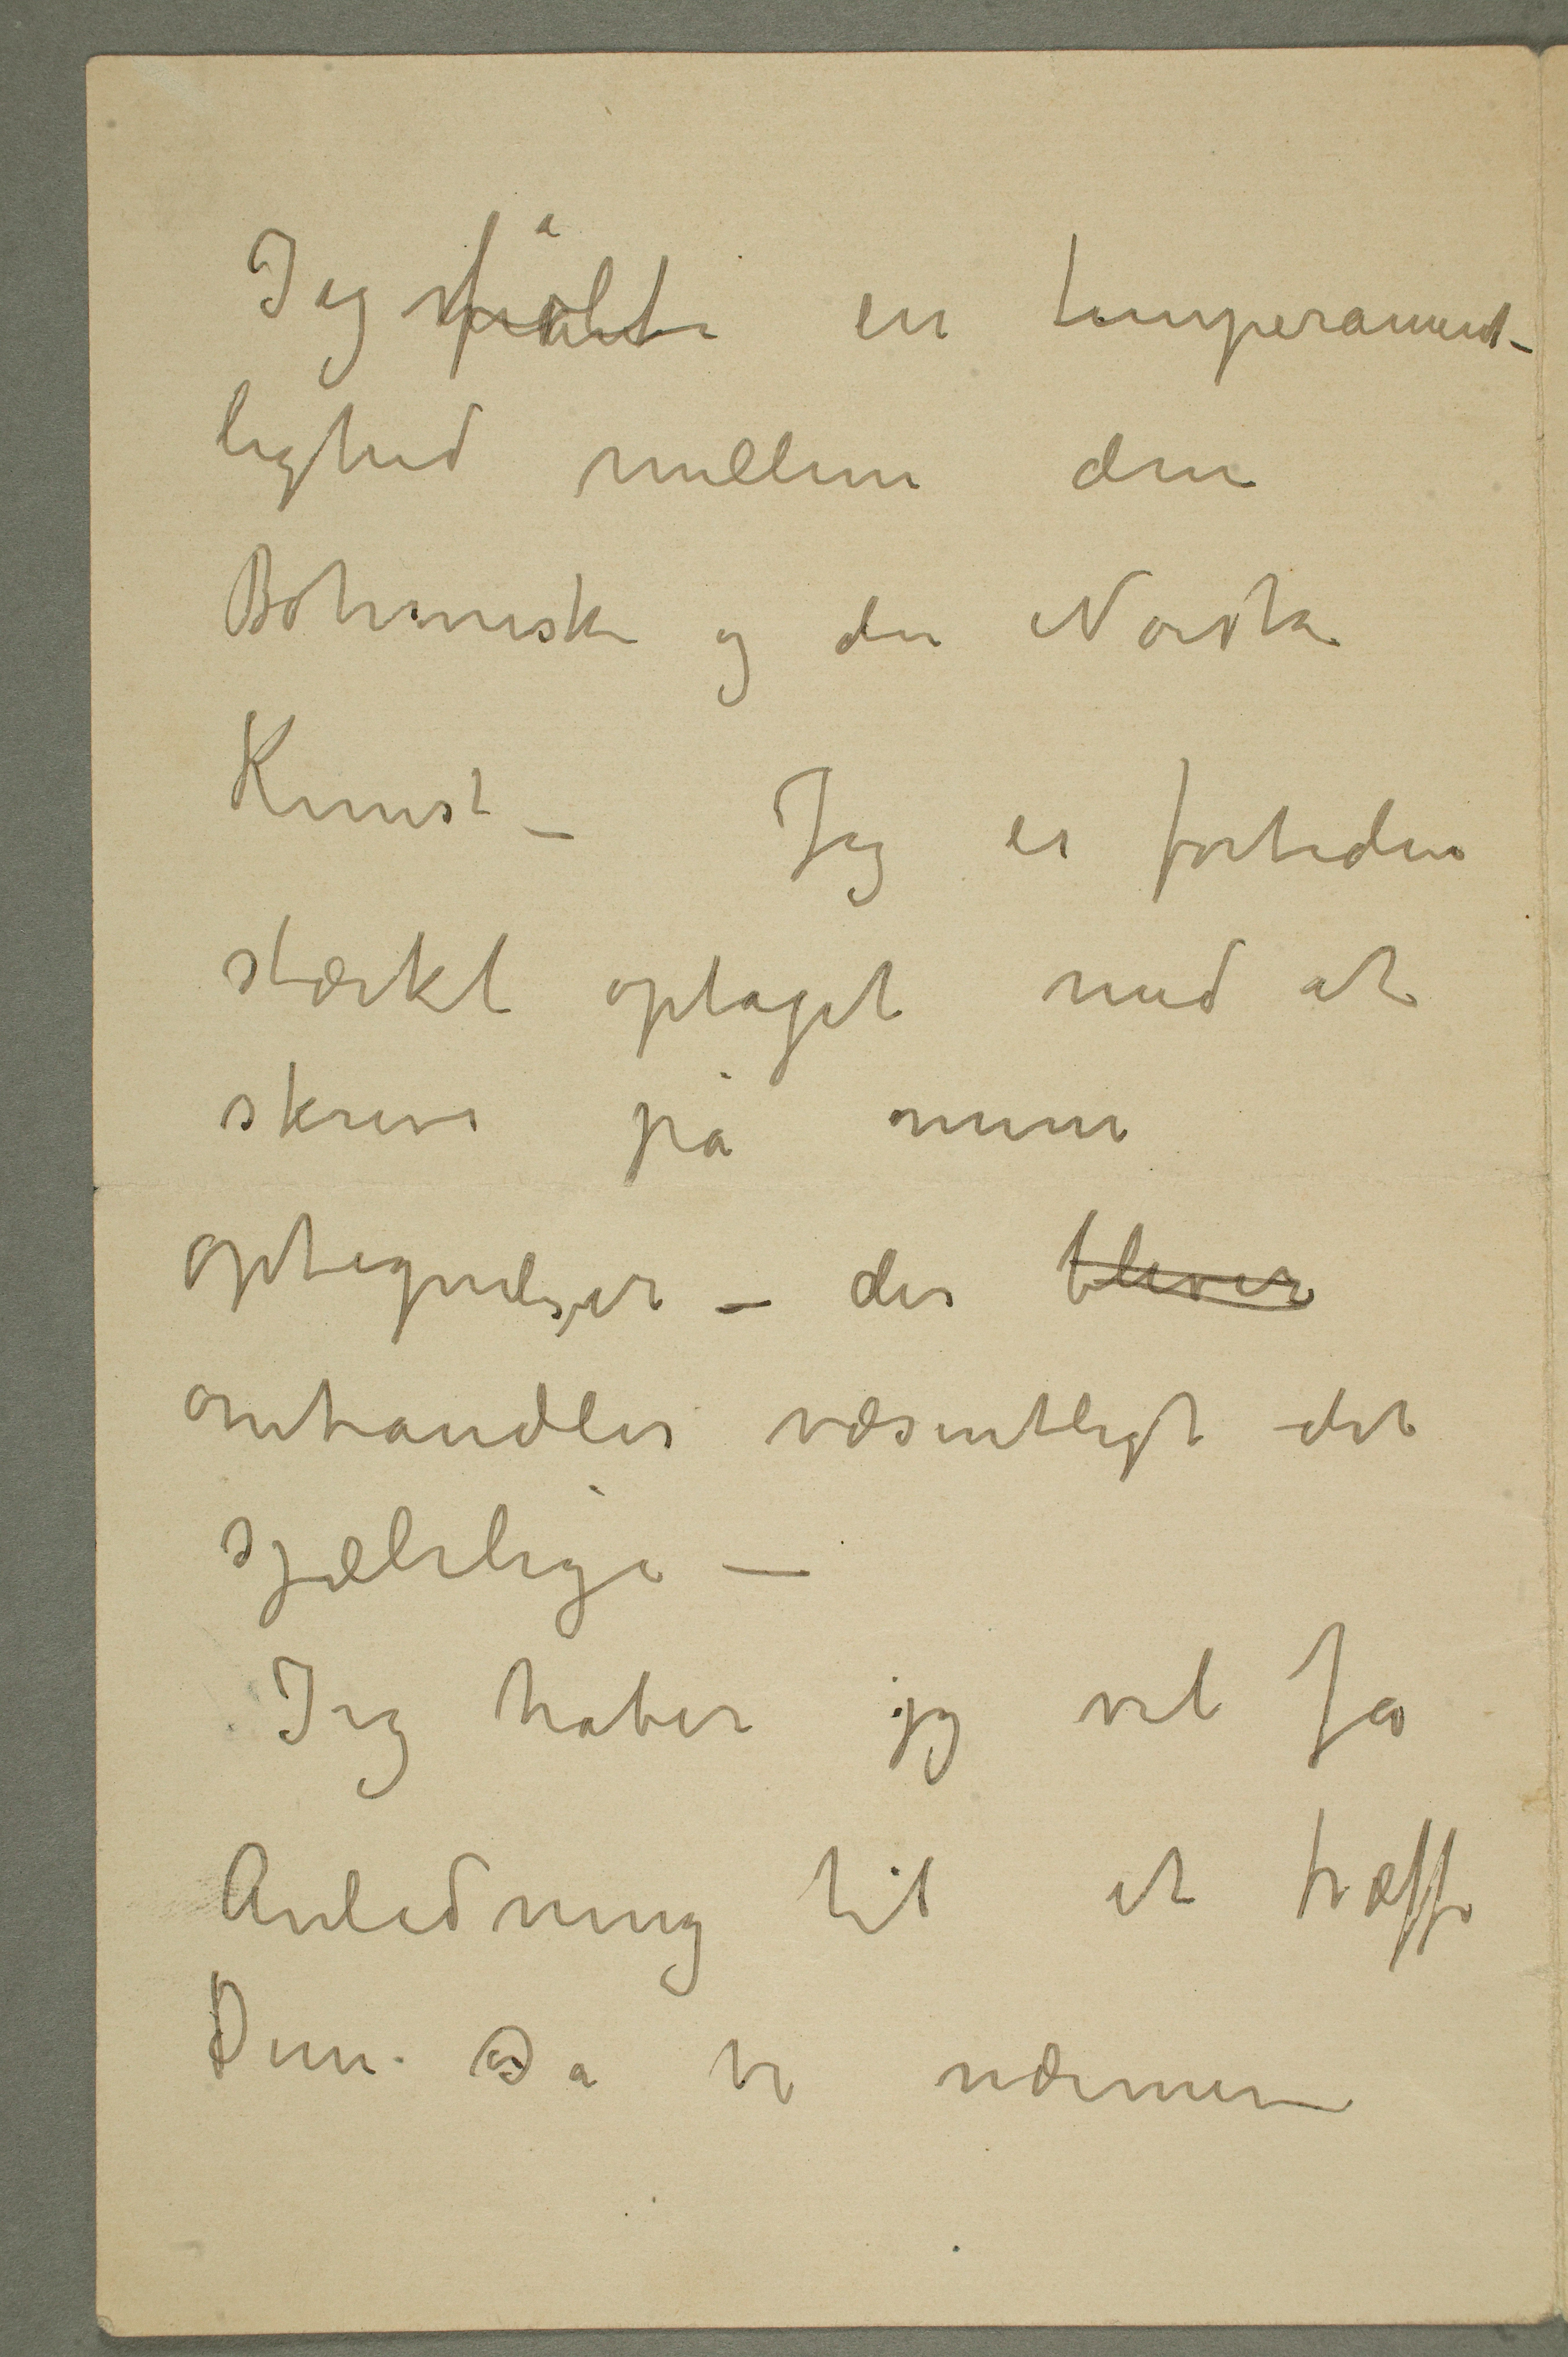 Jeg følte en temperament-
lighed mellem den
Bøhmiske og den Norske
Kunst – Jeg er fortiden
stærkt optaget med at
skrive på mine
optegnelser – der bliver
omhandler væsentligt det
sjælelige –
Jeg håber jeg vil få
Anledning til at træffe
Dem. Da vi nærmer